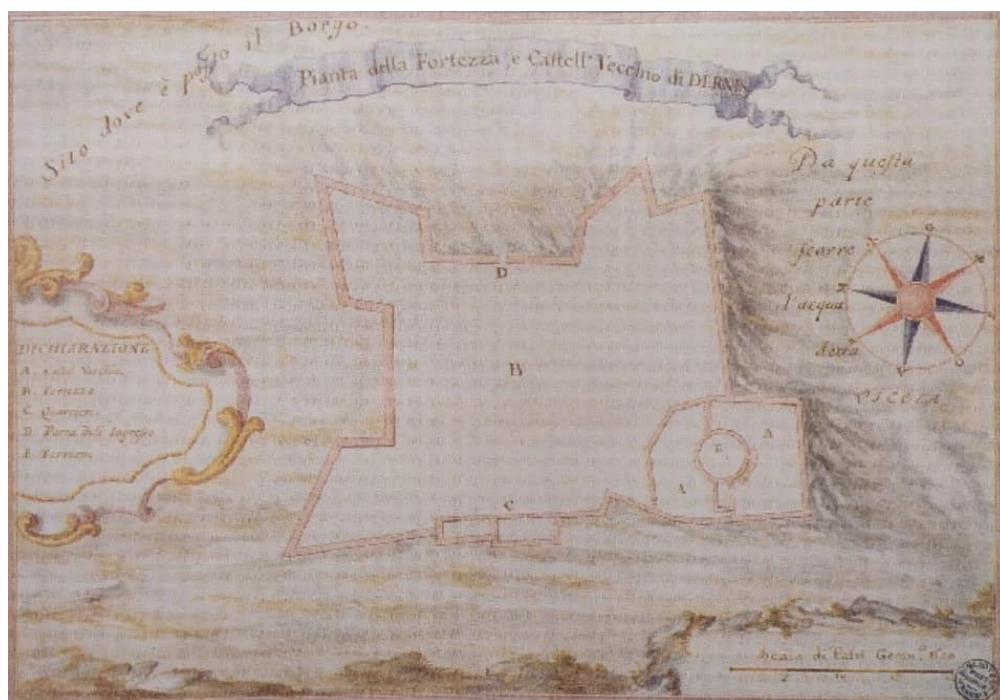 Sito dove è posto il Borgo.
Pianta della Fortezza, e Castell Vecchio di DERNIS
Da questa
parte
scorre
l'acqua
detta
CICOLA
DICHIARAZIONE
A
B. Fortezza
C Quartieri
D Porta dell Ingresso
E Torrion
D
B
C
A
E
A
Scala di Passi Geom.